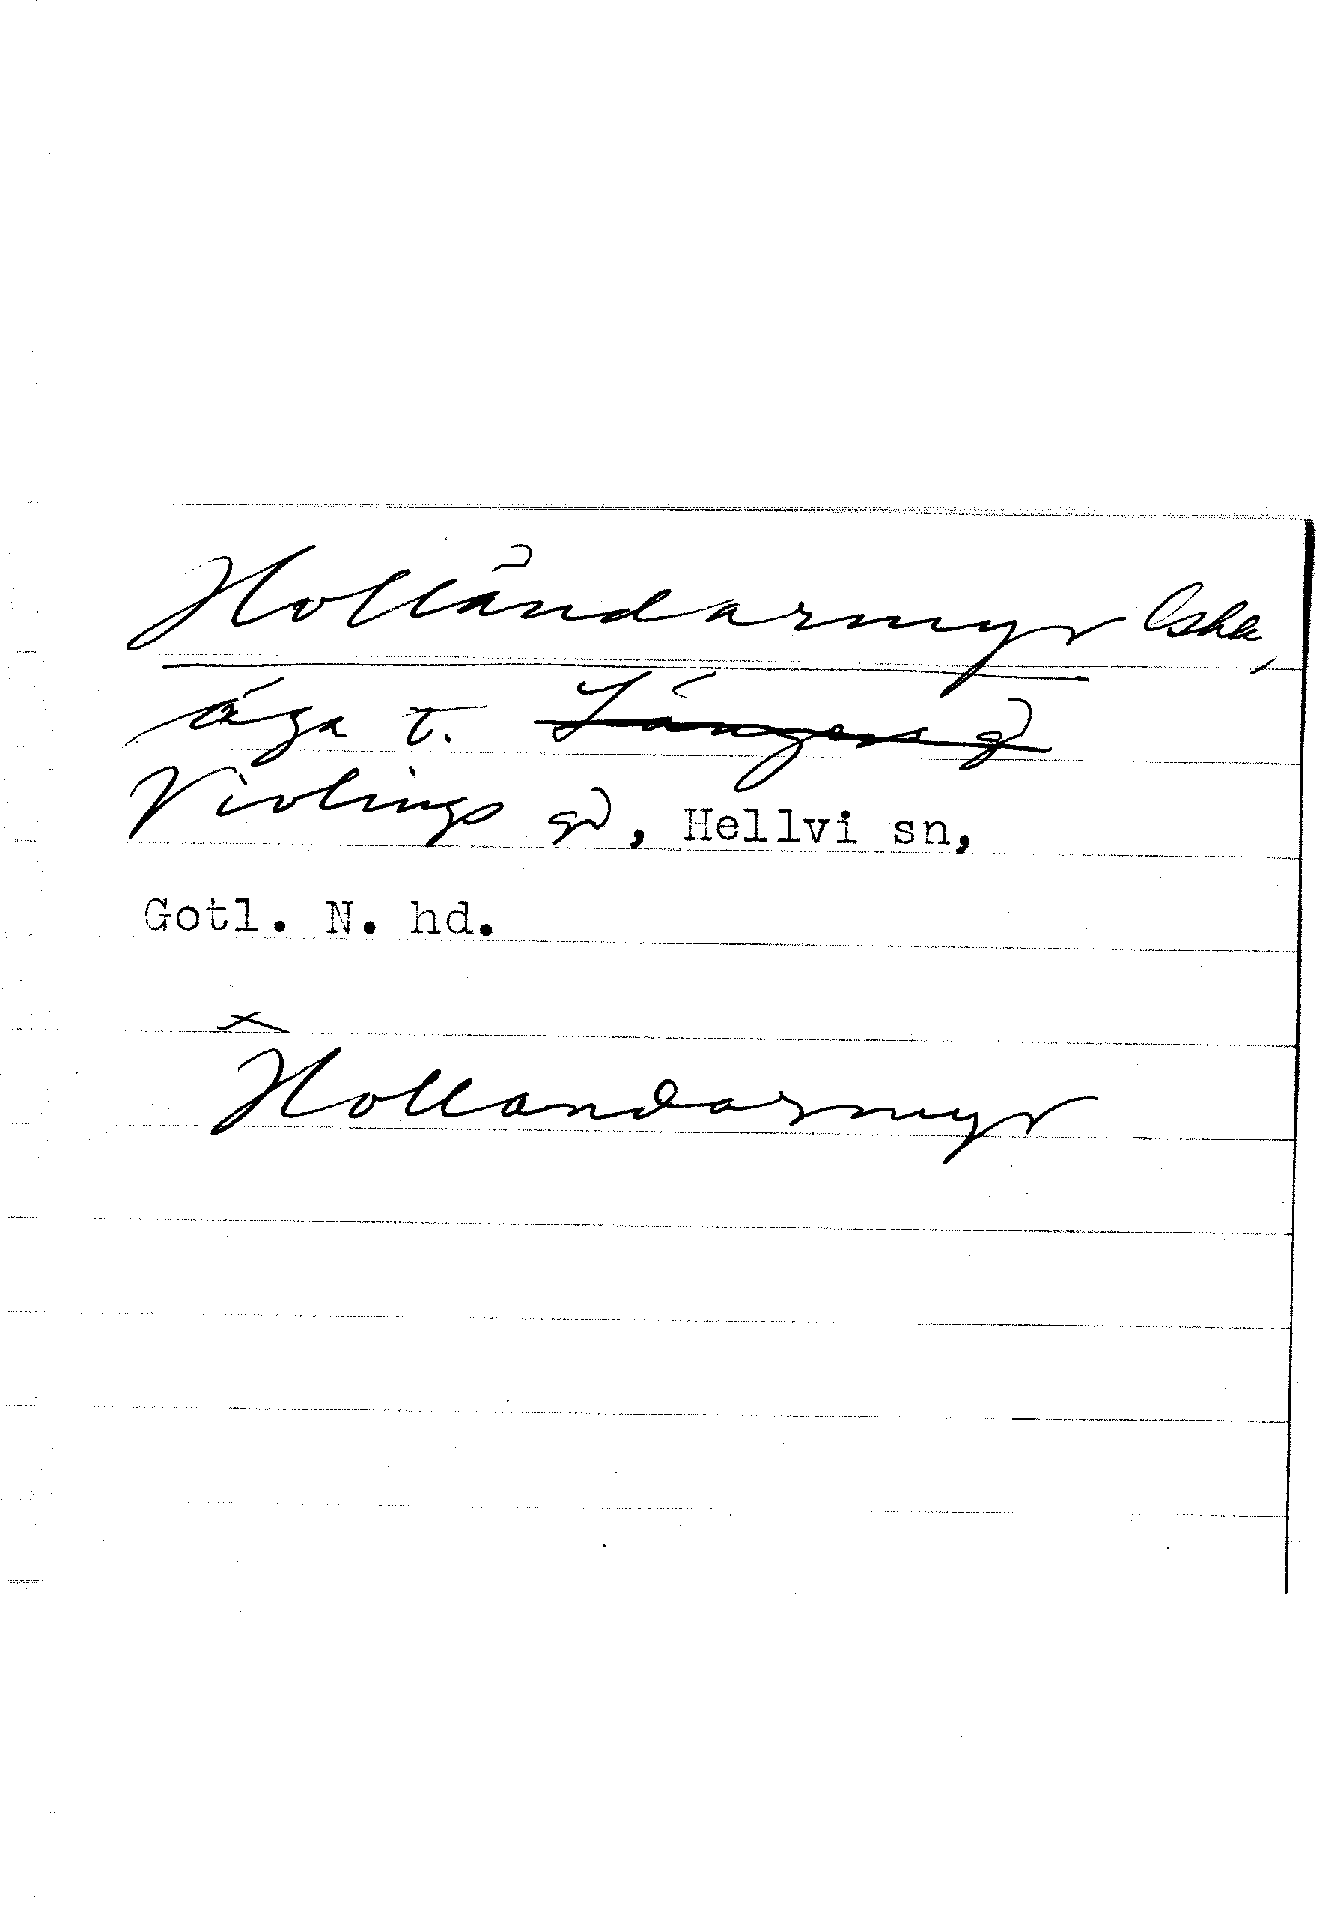 Holländarmyr
äga t. Långers gd
Vivlings gd, Hellvi sn,
Gotl. N. hd.
Hollandarmyr